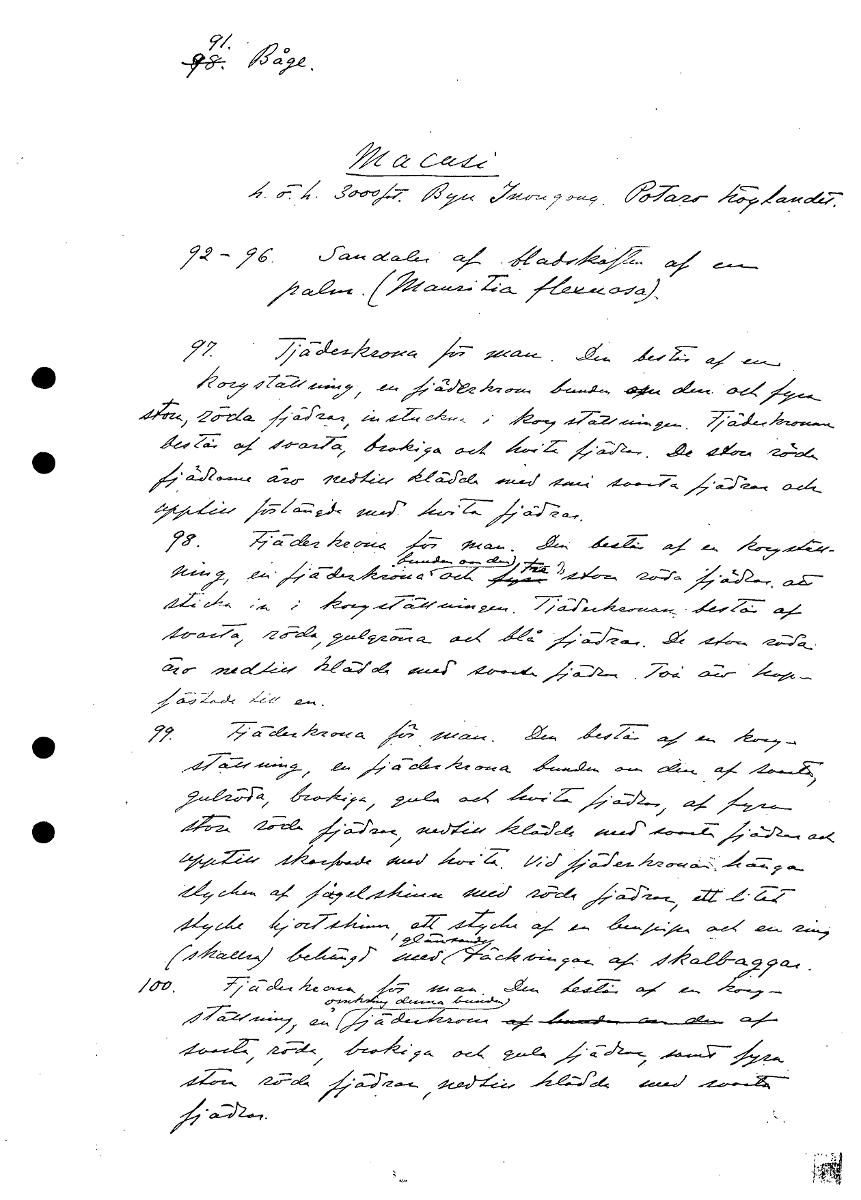 91.
98. Båge.
Macusi
h. ö. h. 3000 fot. Byn Potaro höglandet.
92–96. Sandaler af bladskaften af en
palm. (Mauritia flexuosa).
97. Fjäderkrona för man. Den består af en
korgställning, en fjäderkrona bunden om den och fyra
stora, röda fjädrar, instuckna i korgställningen. Fjäderkronan
består af svarta, brokiga och hvita fjädrar. De stora röda
fjädrarne äro nedtill klädda med små svarta fjädrar och
upptill förlängda med hvita fjädrar.
98. Fjäderkrona för man. Den består af en korgställ-
bunden om den
ning, en fjäderkrona och fyra tre stora röda fjädrar, att
sticka in i korgställningen. Fjäderkronan består af
svarta, röda, gulgröna och blå fjädrar. De stora röda
äro nedtill klädda med svarta fjädrar. Två äro hop-
fästade till en.
99. Fjäderkrona för man. Den består af en korg-
ställning, en fjäderkrona bunden om den af svarta,
gulröda, brokiga, gula och hvita fjädrar, af fyra
stora röda fjädrar, nedtill klädda med svarta fjädrar och
upptill skarfvade med hvita. Vid fjäderkronan hänga
stycken af fågelskinn med röda fjädrar, ett litet
stycke hjortskinn, ett stycke af en benpipa och en ring
glänsande
(skallra) behängd med täckvingar af skalbaggar.
100. Fjäderkrona för man. Den består af en korg-
omkring denna bunden
ställning, en fjäderkrona af bunden om den af
svarta, röda, brokiga och gula fjädrar, samt fyra
stora röda fjädrar, nedtill klädda med svarta
fjädrar.